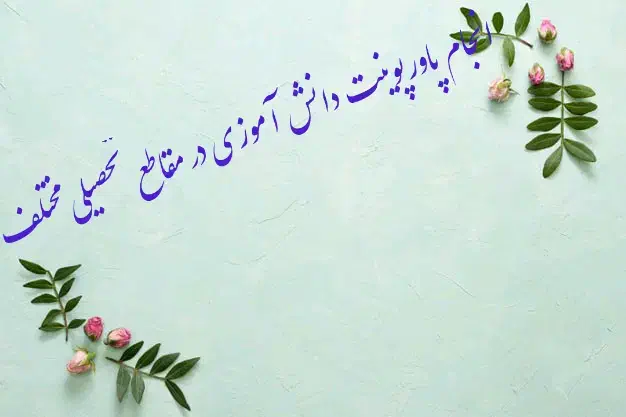 انجام پاورپوینت دانش آموزی در مقاطع تحصیلی مختلف